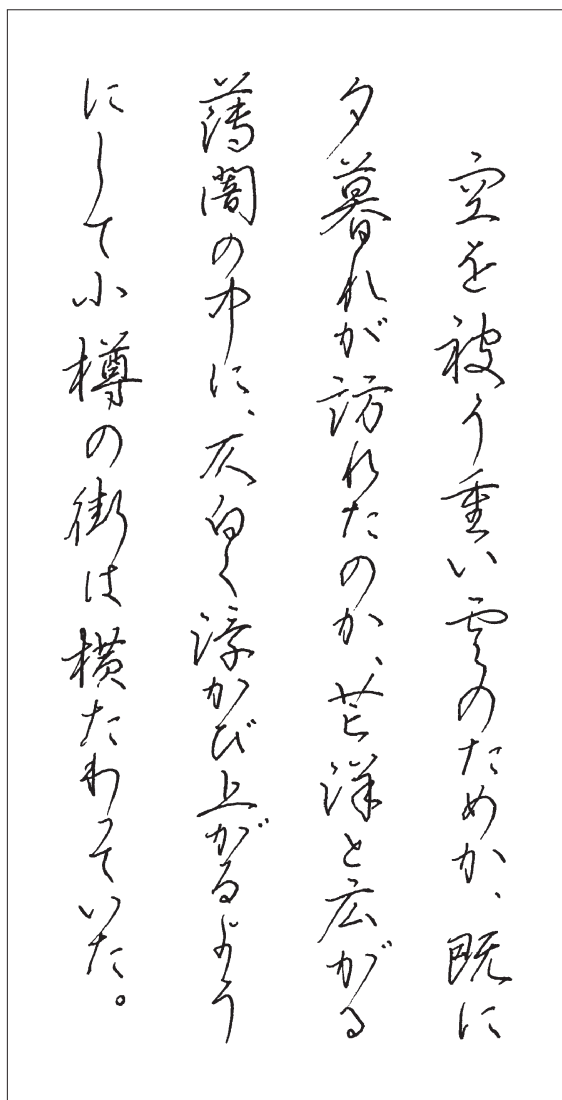 空を被う重い雲のためか、既に
夕暮れが訪れたのか、茫洋と広がる
薄闇の中に、仄白く浮かび上がるよう
にして小樽の街は横たわっていた。